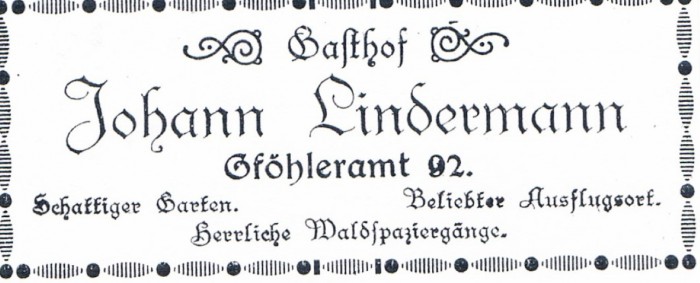 Gasthof
Johann Lindermann
Gföhleramt 92.
Schattiger Garten. Beliebter Ausflugsort.
Herrliche Waldspaziergänge.